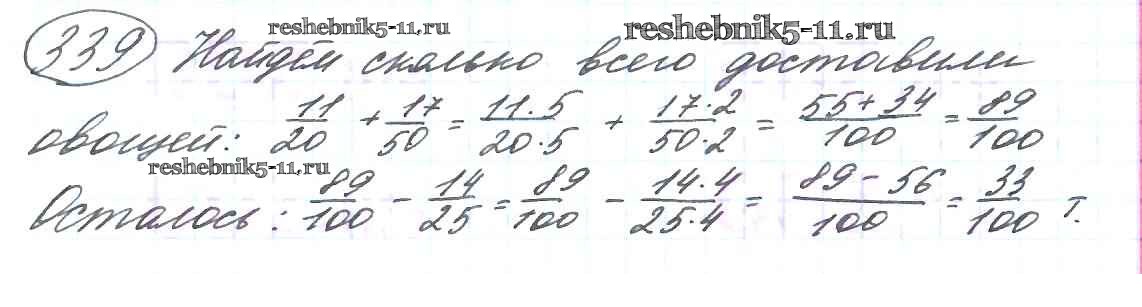 reshebnik5-11.ru reshebnik5-11.ru
339 Найдём сколько всего доставили
овощей: 11/20 + 17/50 = 11·5/20·5 + 17·2/50·2 = 55+34/100 = 89/100
reshebnik5-11.ru
Осталось: 89/100 - 14/25 = 89/100 - 14·4/25·4 = 89-56/100 = 33/100 т.